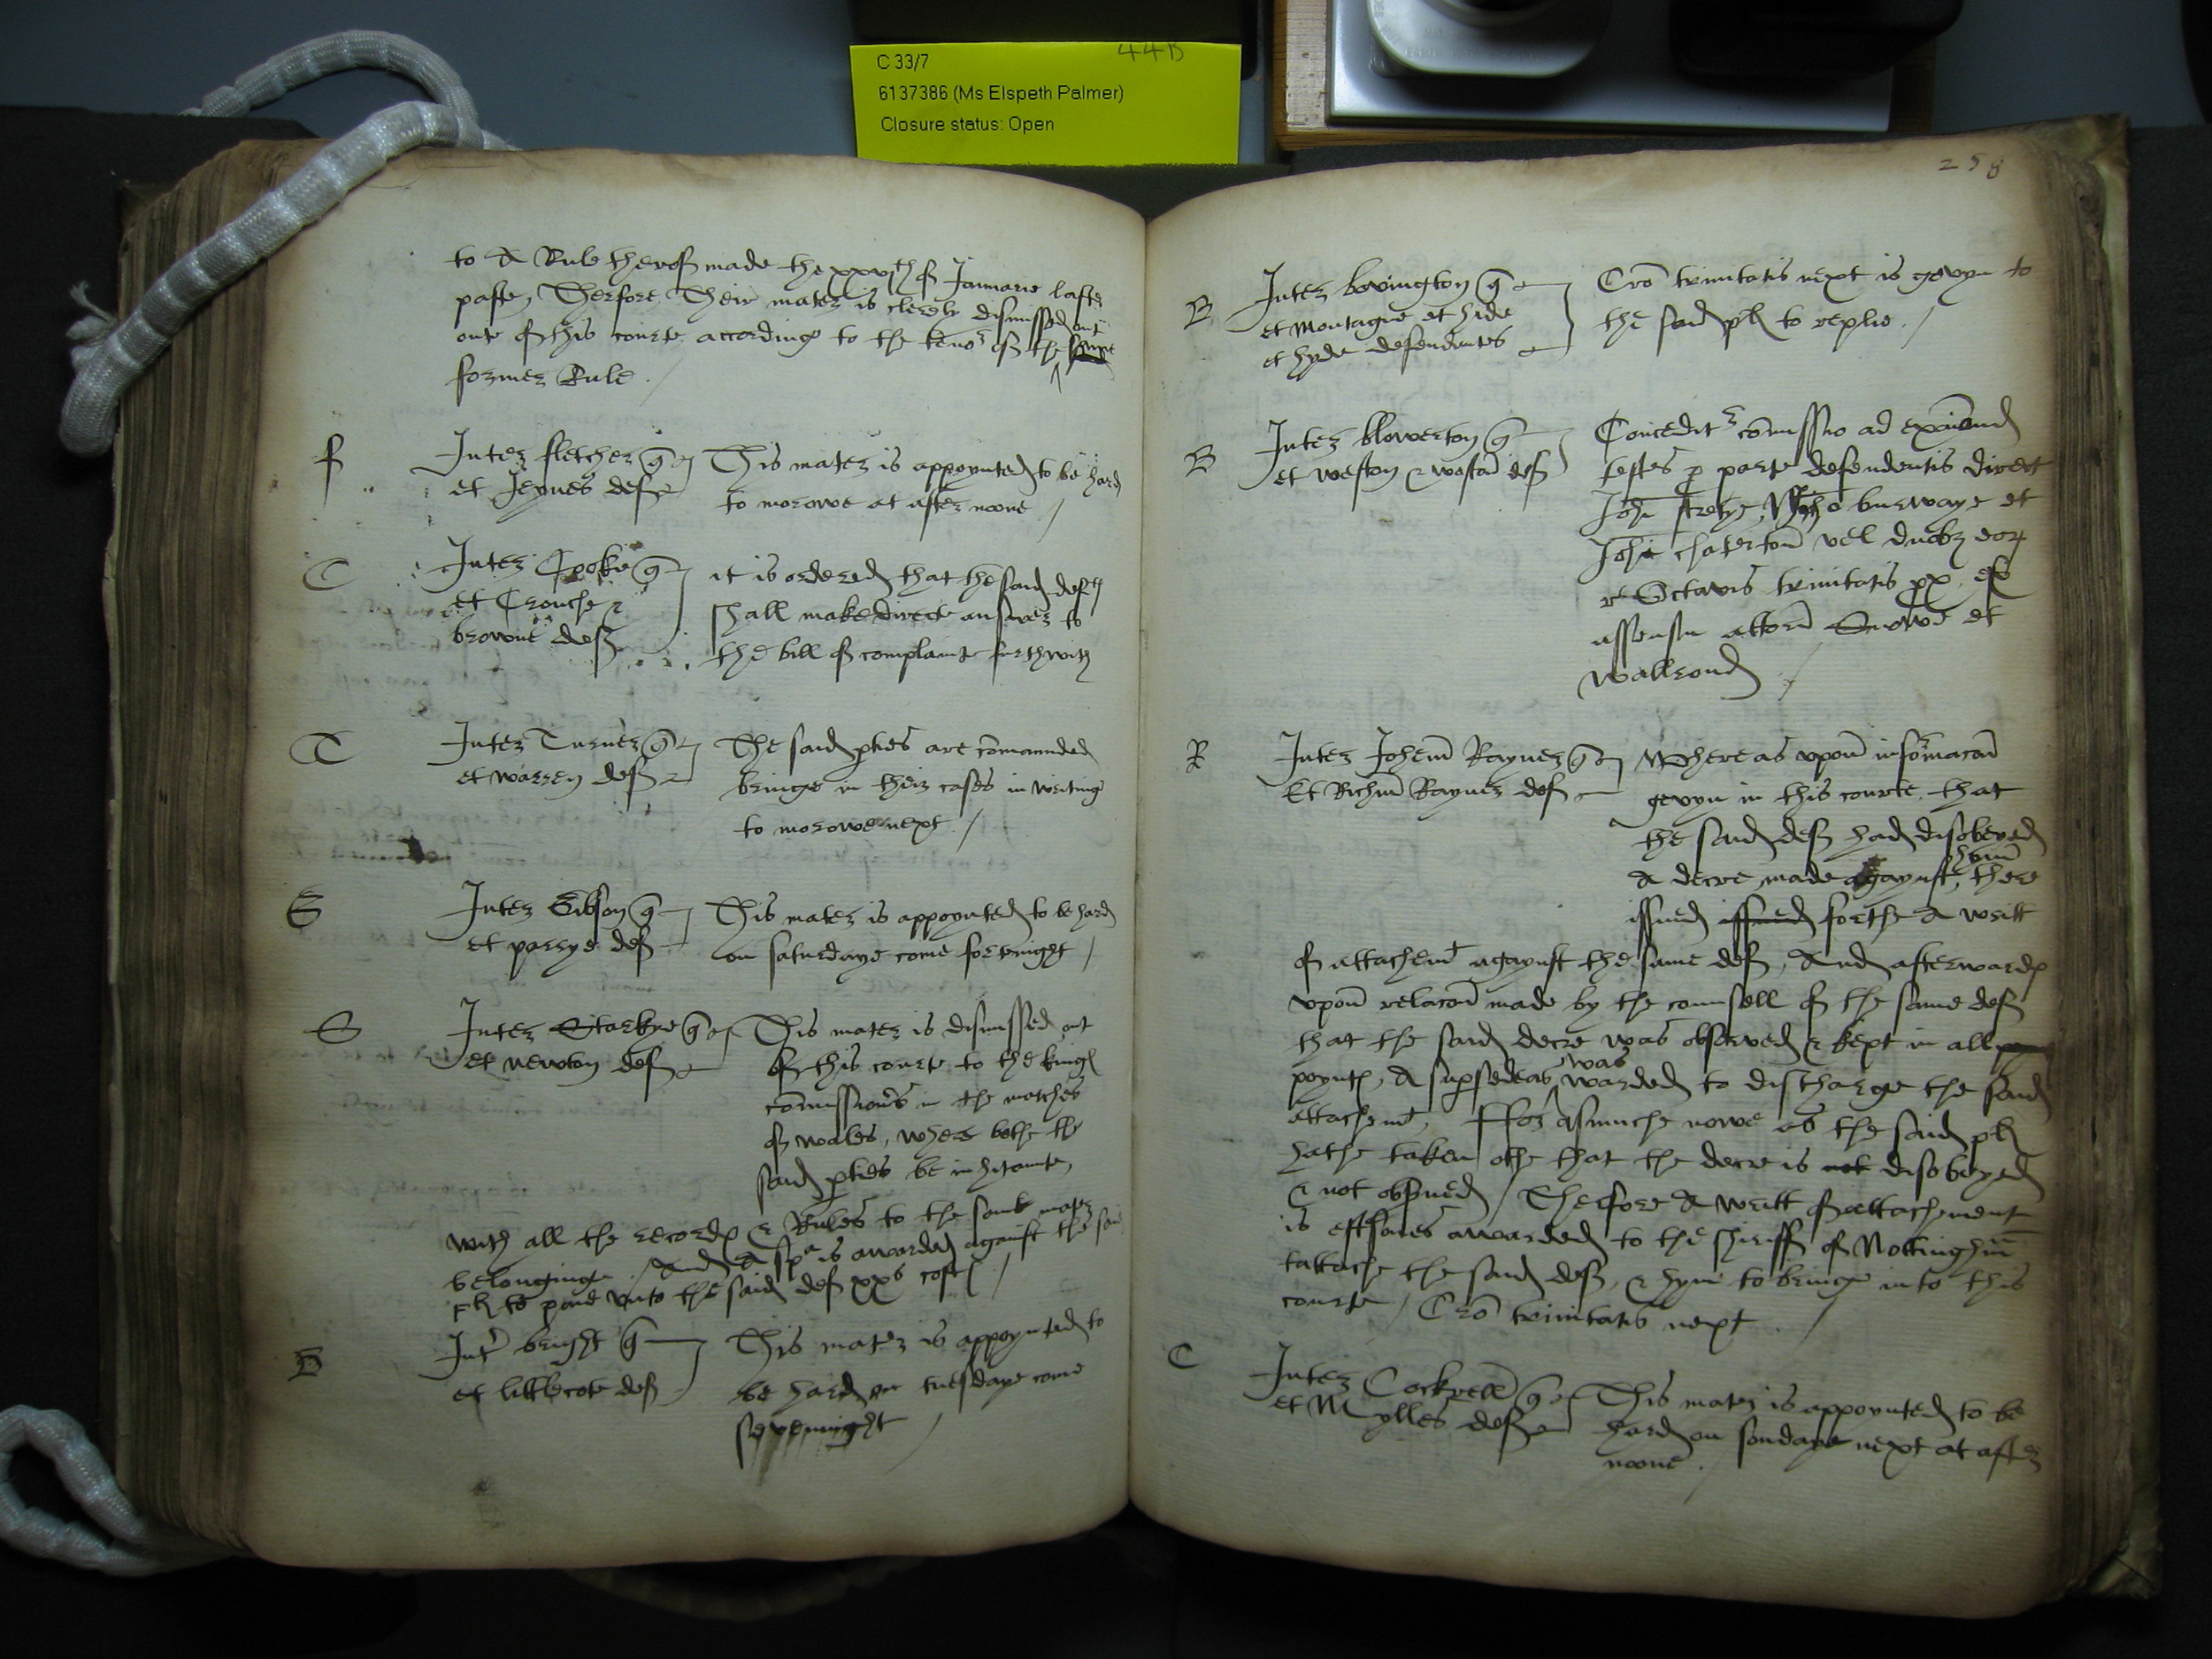 44B
C 33/7
6137386 (Ms Elspeth Palmer)
Closure status: Open
to A Rule therof made the xxvjth of Januarie laste
paste, Therfore, Their mater is clerely dismyssed out
oute of this courte according to the tenor of the same
former Rule . /
F
Inter Fletcher q
et Jeynes def
This mater is appoynted to be hard
to morowe at after noone /
C
Inter Coke q
et Crouche &
browne def
it is ordered that the said def
shall make direct answer to
the bill of complainte furthwith
T
Inter Turner q
et warren def
The said pties are comaunded
bringe in their cases in writing
to morowe next . /
G
Inter Gibson q
et parrye def
This mater is appoynted to be hard
on saturdaye come fortnight /
S
Inter Starkye q
et newton def
This mater is dismissed out
of this courte to the kings
comissioners in the marches
of wales, where bothe the
said pties be inhitante,
with all the records & Rules to the same mater
belonginge / And A spa is awarded against the said
pl to paie unto the said def xxs costs /
B
Intr bright q
et littlecote def
This mater is appoynted to
be hard on tuesdaye come
sevennight /
258
B
Inter bovington q
et Montague et hide
et hyde defendentes
Cro trinitatis next is gevyn to
the said pl to replie . /
B
Inter bloverton q
et weston & weston def
Conceditr comissio ad examinand
testes p parte defendentis direct
Johi stretye, Nicho burwaye et
Johi chaterton vel duobz eor
r Octavis trinitatis px, ex
assensu attorn Snowe et
wallrond /
R
Inter Johem Rayner q
Et Richm Rayner def
Whereas upon informacon
gevyn in this courte, that
the said def had disobeyed
hym
A decre made agaynst, there
issued issued forthe A writt
of attachemt agaynst the same def, And afterwards
upon relacon made by the counsell of the same def
that the said decre was observed & kept in all
was
poynts, A supsedeas warded to discharge the said
attachemt, Ffor asmuche nowe as the said pl
hathe taken othe that the decre is not disobeyed
& not obsued / Therfore A writt of attachement
is eftsones awarded to the shiriff of Nottinghm
tattache the said def, & hym to bringe into this
courte / Cro trinitatis next . /
C
Inter Cockrell q
et Mylles def
This mater is appoynted to be
hard on sondaye next at after
noone . /